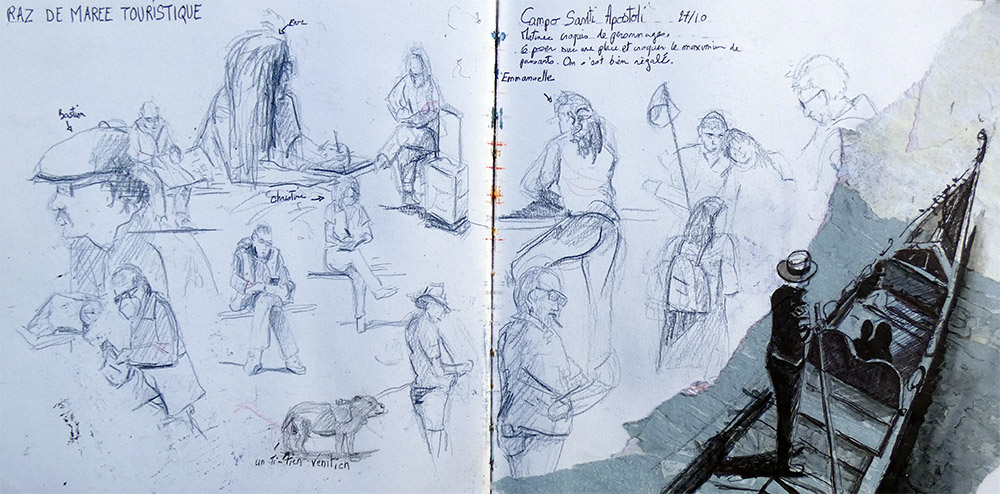 RAZ DE MAREE TOURISTIQUE
Bastien
Christine
un ti-tien Vénitien
Campo Santi Apostoli 27/10
Matinée croquis de personnages.
Se poser sur une place et croquer le maximum de
passants. On s'est bien régalé.
Emmanuelle